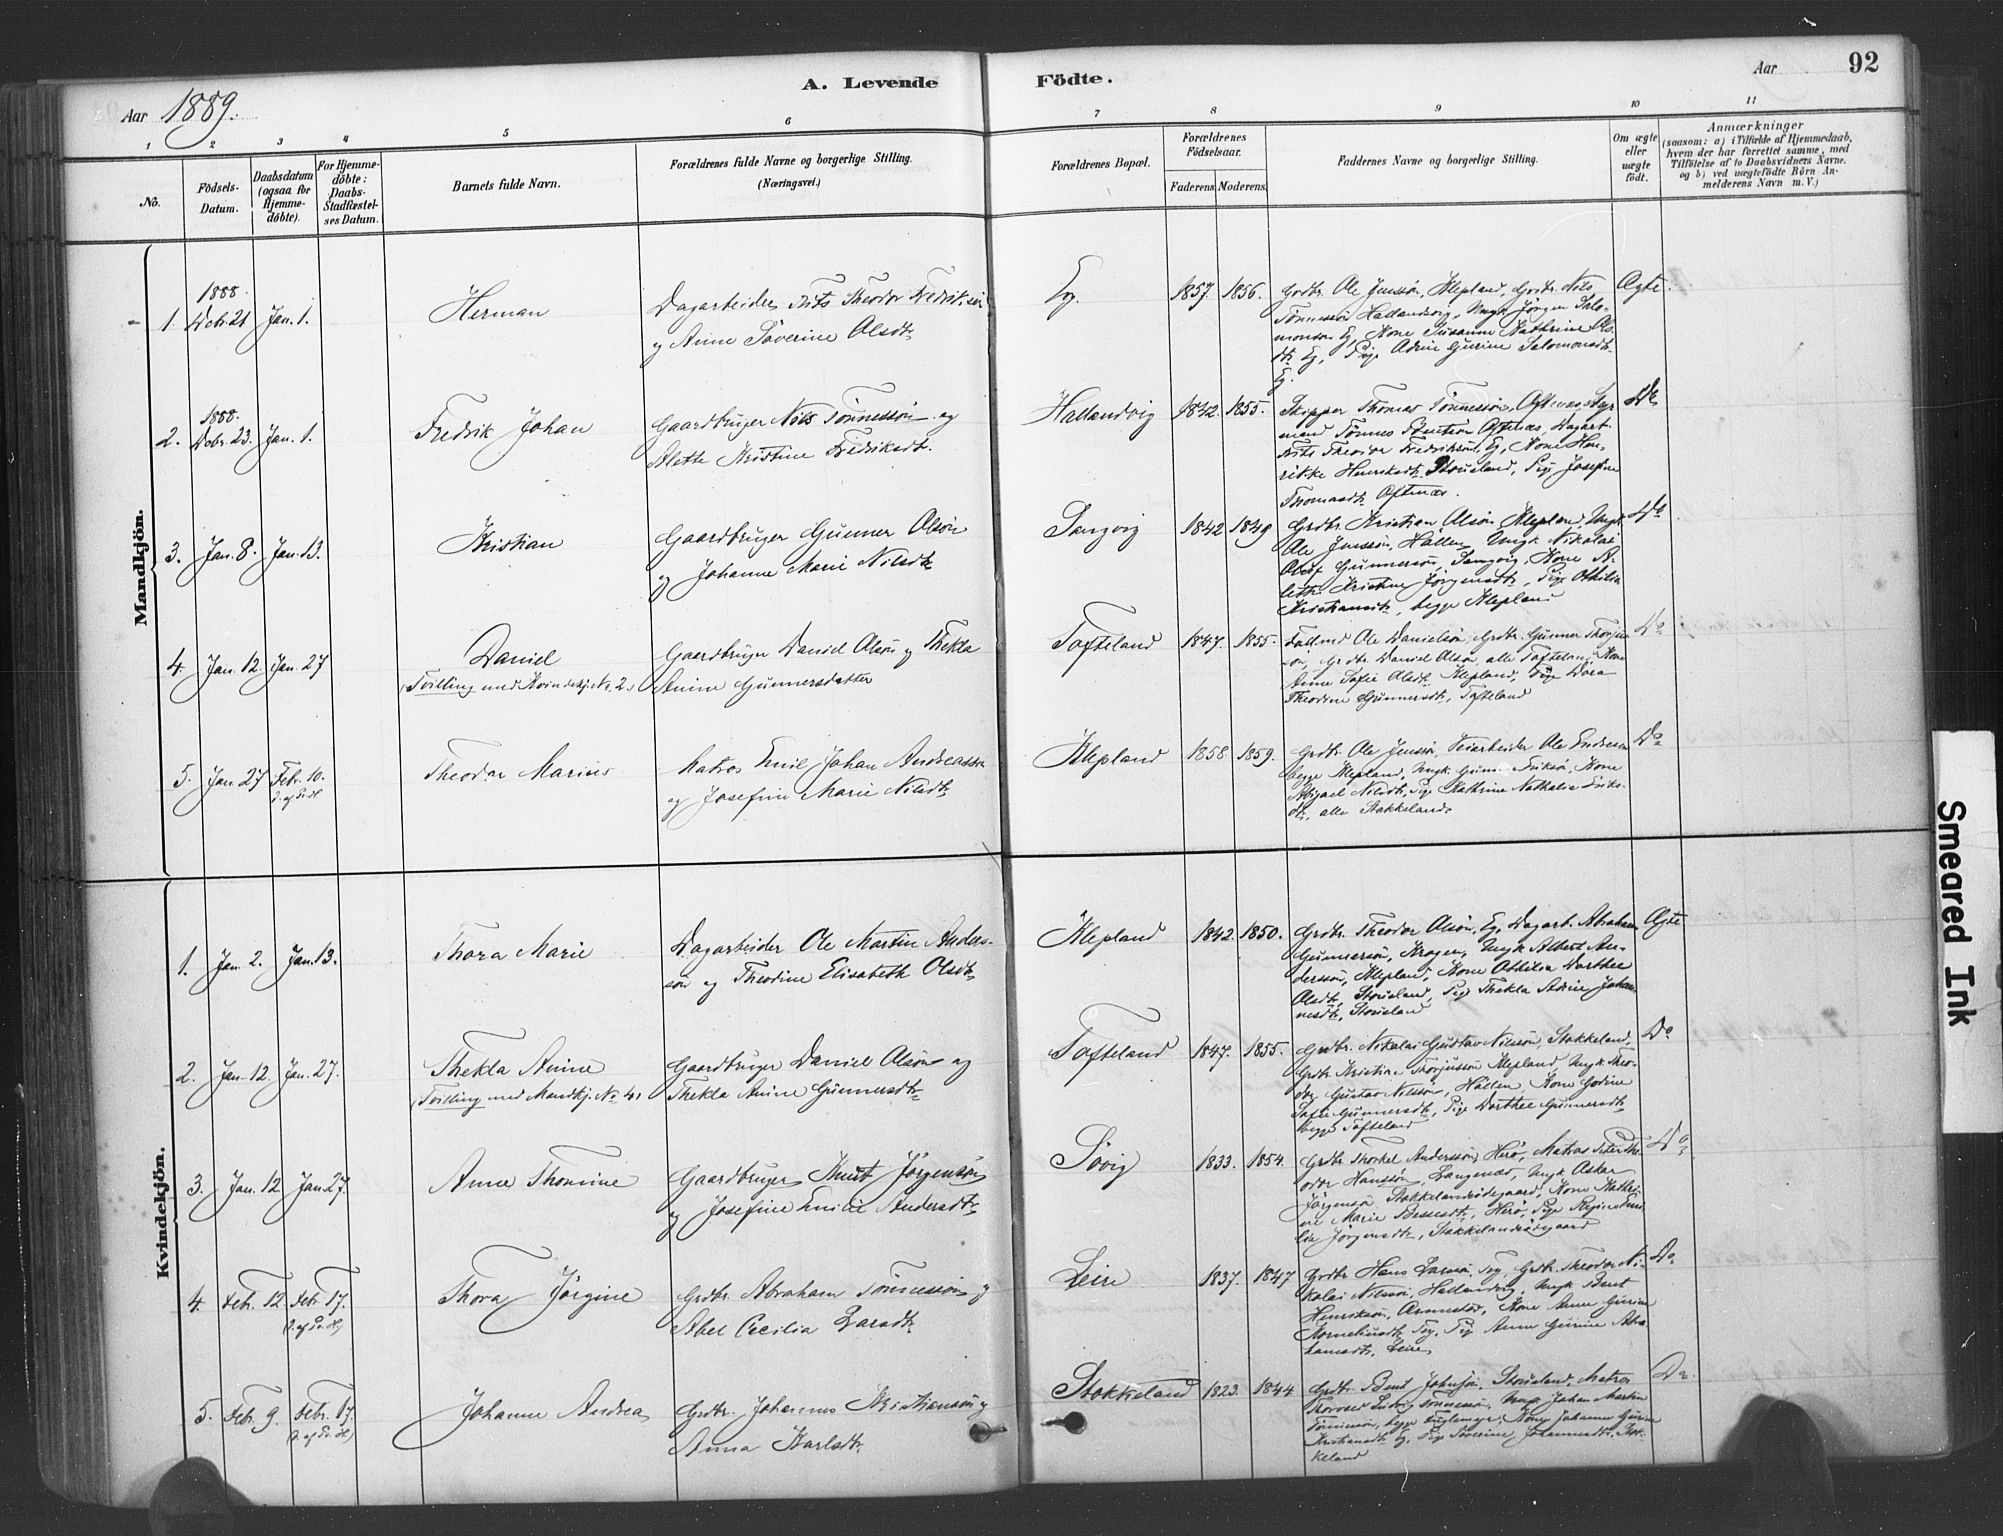 A. Levende Födte.
Aar 1889.
Aar 92
1 2 3 4 5 6 7 8 9 10 11
No.
Födsels-
Datum.
Daabsdatum
(ogsaa for
Hjemme-
döbte).
For Hjemme-
döbte:
Daabs-
Stadfæstel-
ses Datum.
Barnets fulde Navn.
Forældrenes fulde Navne og borgerlige Stilling.
(Næringsvei.)
Forældrenes Bopæl.
Forældrenes
Födselsaar.
Faderens. Moderens.
Faddernes Navne og borgerlige Stilling.
Om ægte
eller
uægte
født.
Anmærkninger
(saasom: a) i Tilfælde af Hjemmedaab,
hvem der har forrettet samme, med
Tilföielse af to Daabsvidners Navne.
og b) ved uægtefödte Börn An-
melderens Navn m. V.)
Mandkjön.
1. 1888. Decbr. 21 Jan. 1. Herman
Dagarbeider Frits Theodor Fredriksen
og Anne Söverine Olsdtr
Eg. 1857. 1856.
Grdbr. Ole Jenssön, Klepland, Grdbr. Nils
Tönnessön Hallandvig, Ungk. Jörgen Salo-
monsen Eg, Kone Susanne Kathrine Ols-
dtr Eg, Pige Adrine Gurine Salomonsdtr
Eg.
Ægte.
2. 1888. Decbr. 23. Jan. 1. Fredrik Johan
Gaardbruger Nils Tönnessön og
Alette Kristine Fredriksdt.
Hallandvig 1842. 1855.
Skipper Thomas Tönnessön, Oftenæs, Styr
mand Tönnes Oftenæs, Dagarb.
Frits Theodor Fredriksön, Eg, Kone Hen-
rikke Henriksdt. Stousland, Pige Josefine
Thomasdt. Oftenæs.
Do
3. Jan. 8. Jan. 13. Kristian
Gaardbruger Gunner Olsön
og Johanne Marie Nilsdtr
Sangvig 1842 1849
Grdbr. Kristian Olsön Klepland, Ungk.
Ole Jenssön, Hallen, Ungk Nikolai
Oluf Gunnersön, Sangvig, Kone A-
lette Kristine Jörgensdtr, Pige Othilia
Kristiansdtr, begge Klepland
Do
4. Jan. 12. Jan. 27 Daniel
(Tvilling med Kvindekj. No. 2.)
Gaardbruger Daniel Olsön og Thekla
Anine Gunnersdatter
Tofteland 1847. 1855.
Ole Danielsön, Grdbr. Gunner Thorjus
sön, Grdbr. Daniel Olsön, alle Tofteland, Kone
Anne Sofie Olsdt. Klepland, Pige Dora
Theodine Gunnersdtr, Tofteland
Do
5. Jan. 27 Febr. 10. Theodor Marius
Matros Emil Johan Andreassen
og Josefine Marie Nilsdtr
Klepland 1858. 1859.
Grdbr. Ole Jenssön, Veiarbeider Ole Endresen
begge Klepland, Ungk. Eriksön, Kone
Abigael Nilsdtr, Pige Kathrine Nathalia Eriks-
dtr, alle Stokkeland.
Do
Kvindekjön.
1. Jan. 2. Jan. 13. Thora Marie
Dagarbeider Ole Martin Anders-
sön og Theodine Elisabeth Olsdtr
Klepland 1842. 1850.
Grdbr. Theodor Olsön, Eg, Dagarb. Abraham
Gunnersön, Kragen, Ungk Albert An-
derssön, Klepland, Kone Othilia Dorthee
Olsdtr, Stousland, Pige Thekla Adrine Johan-
nesdtr, Stousland
Ægte
2. Jan. 12. Jan. 27. Thekla Anine
(Tvilling med Mandkj. No 4)
Gaardbruger Daniel Olsön og
Thekla Anine Gunnersdtr
Tofteland 1847. 1855.
Grdbr. Nikolai Gustav Nilssön, Stokkeland,
Grdbr Kristian Thorjussön Klepland, Ungk. Theo-
dor Gustav Nilssön, Hallen, Kone Godine
Sofie Gunnersdtr, Pige Dorthee Gunnersdtr
begge Tofteland
Do
3. Jan. 12 Jan. 27. Anne Thomine
Gaardbruger Knut Jörgensön
og Josefine Emilie Andersdtr
Sövig 1833. 1854.
Grdbr Thorkel Anderssön, Herö, Matros Peter The-
odor Hanssön, Langenæs, Ungk Askar
Jörgensön Stokkelandsödegaard, Kone Kathri-
ne Marie Bessesdtr, Herö, Pige Regine Emi-
lie Jörgensdtr, Stokkelandsödegaard
Do
4. Febr. 12 Febr. 17. Thora Jörgine
Grdbr Abraham Tönnessön og
Abel Cecilia Larsdtr
Leire 1837. 1847
Grdbr Hans Larssön, Grdbr. Theodor Ni-
kolai Nilssön, Hallandvig, Ungk Bent
Henriksön, Aronestad, Kone Anne Gurine
Korneliusdtr, Pige Anne Gurine Abra-
hamsdtr, Leire
Do
5. Febr. 9. Febr. 17. Johanne Andrea
Grdbr. Johannes Kristiansön og
Anna Karlsdtr.
Stokkeland 1823. 1844.
Grdbr. Bent Johnsön, Stousland, Matros
Ludvig Tönnessön, Ungk. Johan Martin
Tönnessön, begge Kone Johanne Gurine
Kristiansdtr Eg, Pige Severine Johannesdtr, Stok-
keland
Do.
Smeared Ink